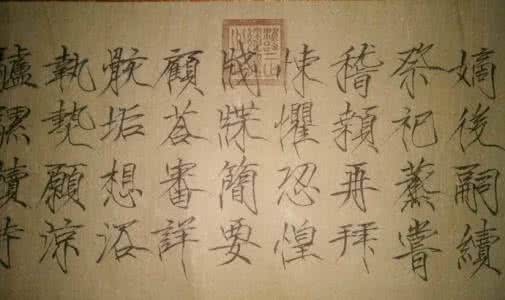 嫡後嗣續
祭祀蒸嘗
稽顙再拜
悚懼恐惶
牋牒簡要
顧荅審詳
骸垢想浴
執熱願涼